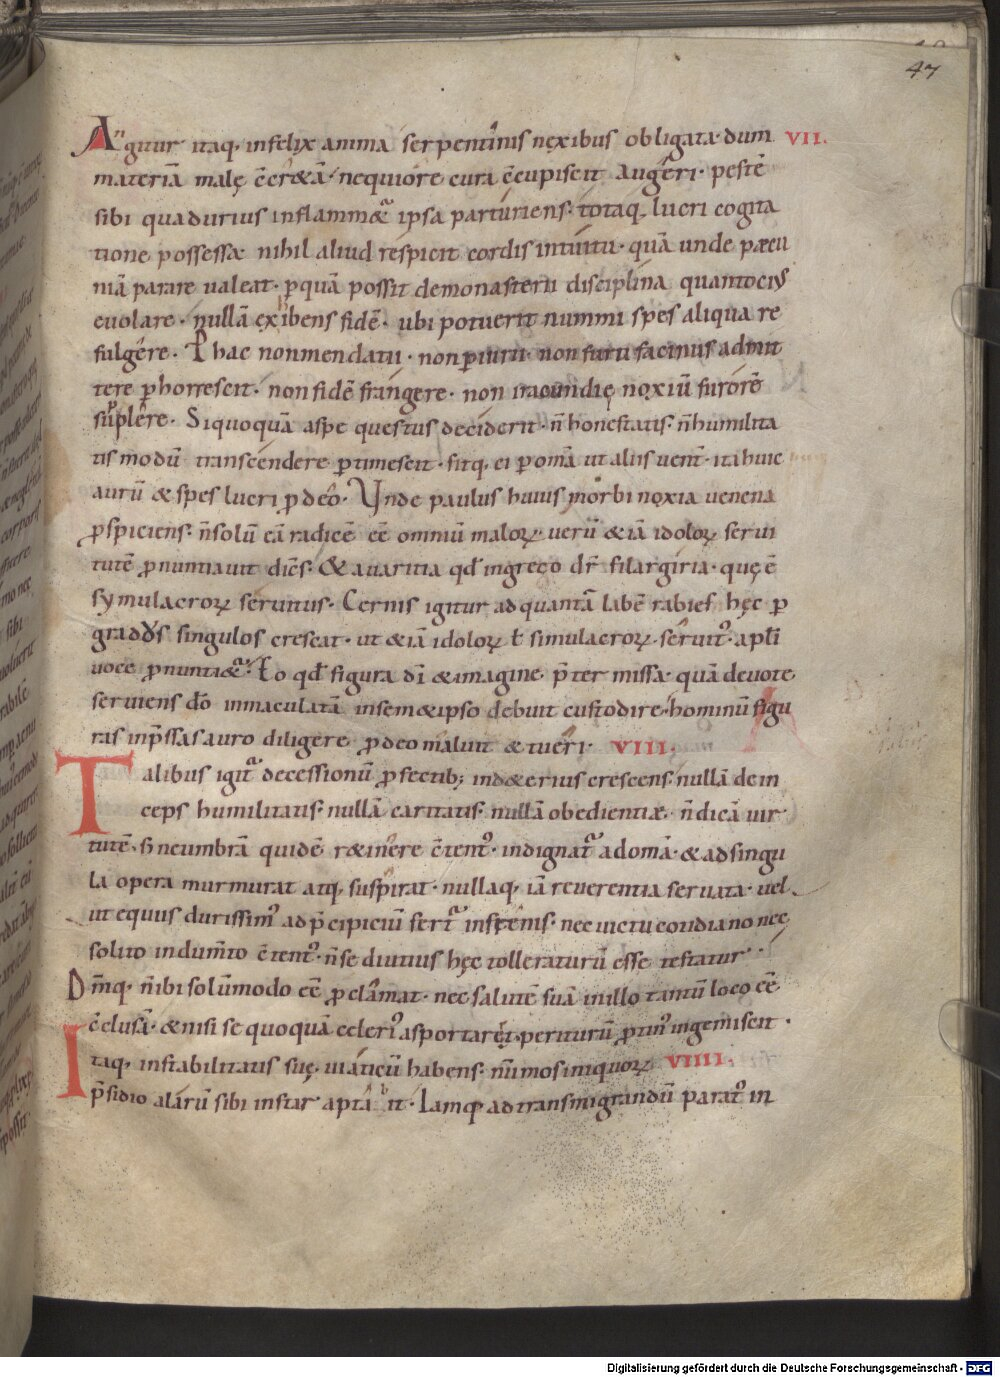 47
Angitur itaq; infelix anima serpentinis nęxibus obligata· dum VII.
materiā malę c̄cr&ā· nequiore cura c̄cupiscit augeri· pestē
sibi qua durius inflammet̄ ipsa parturiens· totaq; lucri cogita
tione possessæ nihil aliud respicit cordis intuitu· quā unde pæcu
niā parare ualeat· p quā possit de monasterii disciplina quantociꝰ
euolare· nullā exibens fidē· ubi potuerit nummi spes aliqua re
fulgere· P hac non mendatii· non piurii· non furti facinus admit
tere phorrescit· non fidē frangere· non iracundię noxiū furorē
supplere· Si quoquā a spe questus deciderit· n̄ honestatis· n̄ humilita
tis modū transcendere ptimescit· fitq; ei p om̄a ut aliis uent̄· ita huic
aurū & spes lucri p deo· Unde paulus huius morbi noxia uenena
pspiciens· n̄ solū eā radicē eē omniū maloꝝ· uerū & iā idoloꝝ serui
tutē pnuntiauit dicēs· & auaritia qd̄ in greco dr̄ filargiria· quę ē
symulacroꝝ seruitus· Cernis igitur ad quantā labē rabies hęc p
gradus singulos crescat· ut & iā idoloꝝ t̄ simulacroꝝ seruitꝰ· apl̄i
uoce pnuntiet̄· Eo qd̄ figura dī & imagine p̄termissa· quā deuote
seruiens dō immaculatā in sem&ipso debuit custodire· hominū figu
ras inp̄ssas auro diligere p deo maluit & tueri· VIII.
Talibus igit̄ decessionū pfectib; in d&erius crescens· nullā dein
ceps humilitatis· nullā caritatis· nullā obedientiæ· n̄ dicā uir
tutē· s; nec umbrā quidē r&inere c̄tentꝰ· indignat̄ ad om̄a· & ad singu
la opera murmurat atq; suspirat· nullaq; iā reuerentia seruata· uel
ut equus durissimꝰ ad p̄cipiciū fert̄ infrenis· nec uictu cotidiano nec
solito indum̄to c̄tentꝰ· n̄ se diutius hęc tolleraturū esse testatur·
Dm̄q; n̄ ibi solūmodo eē pclamat· nec salutē suā in illo tantū loco eē
c̄clusā· & nisi se quoquā celeriꝰ asportaret· periturū ptinꝰ ingemiscit·
Itaq; instabilitatis suę· uiaticū habens· nūmos iniquoꝝ VIIII.
p̄sidio alarū sibi instar aptauit· Iamq; ad transmigrandū paratꝰ in
Digitalisierung gefördert durch die Deutsche Forschungsgemeinschaft - DFG